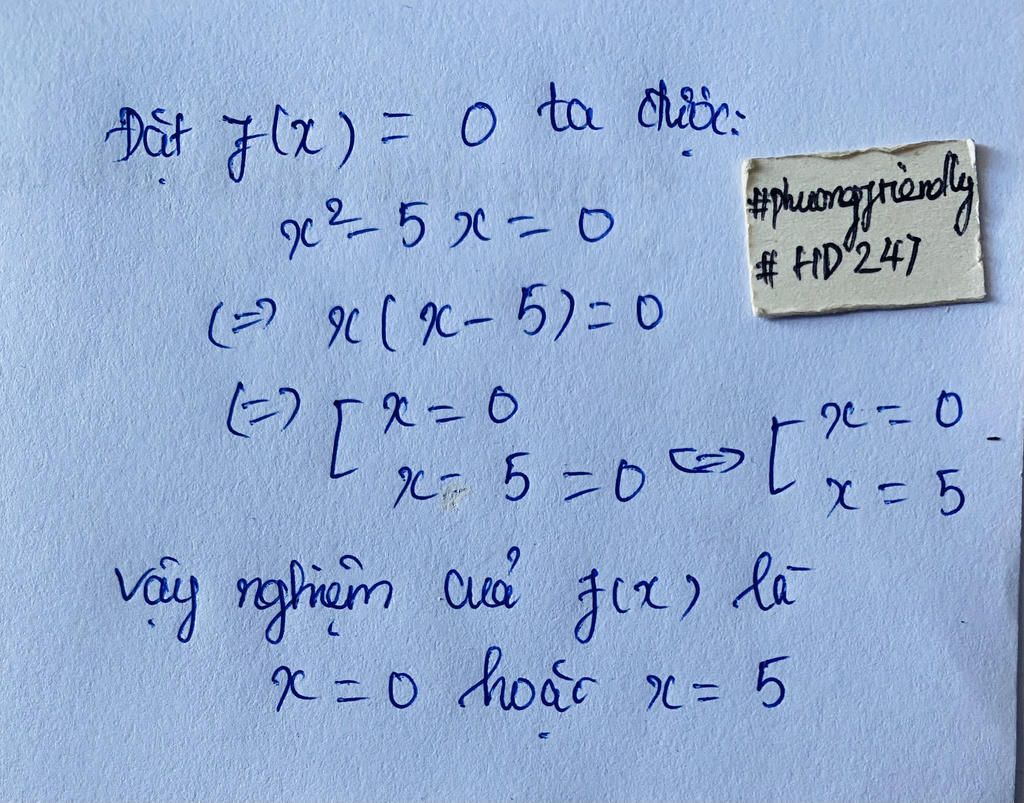 Đặt f(x) = 0 ta được:
x² - 5x = 0
(=) x(x - 5) = 0
(=) [ x = 0
x - 5 = 0 (=) [ x = 0
x = 5
Vậy nghiệm của f(x) là
x = 0 hoặc x = 5
#phuongfriendly
# HD247